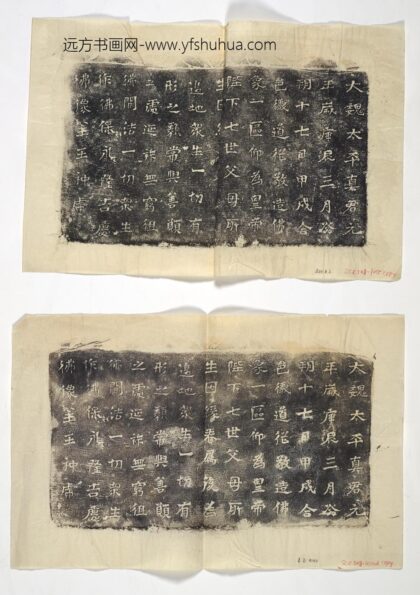 远方书画网-www.yfshuhua.com
大魏太平真君元
年歲庚辰三月
朔十七日甲戌合
邑儀道俗敬造佛
象一區仰為皇帝
陛下七世父母所
生
邊地衆生一切有
形之類常與善願
之 無窮徂
佛聞法一切衆生
作佛保永隆吉慶
佛像主王神席
大魏太平真君元
年歲庚辰三月
朔十七日甲戌合
邑儀道俗敬造佛
象一區仰為皇帝
陛下七世父母所
生 眷属後為
邊地衆生一切有
形之類常與善願
之 無窮徂
佛聞法一切衆生
作 保永隆吉慶
佛像主王神席